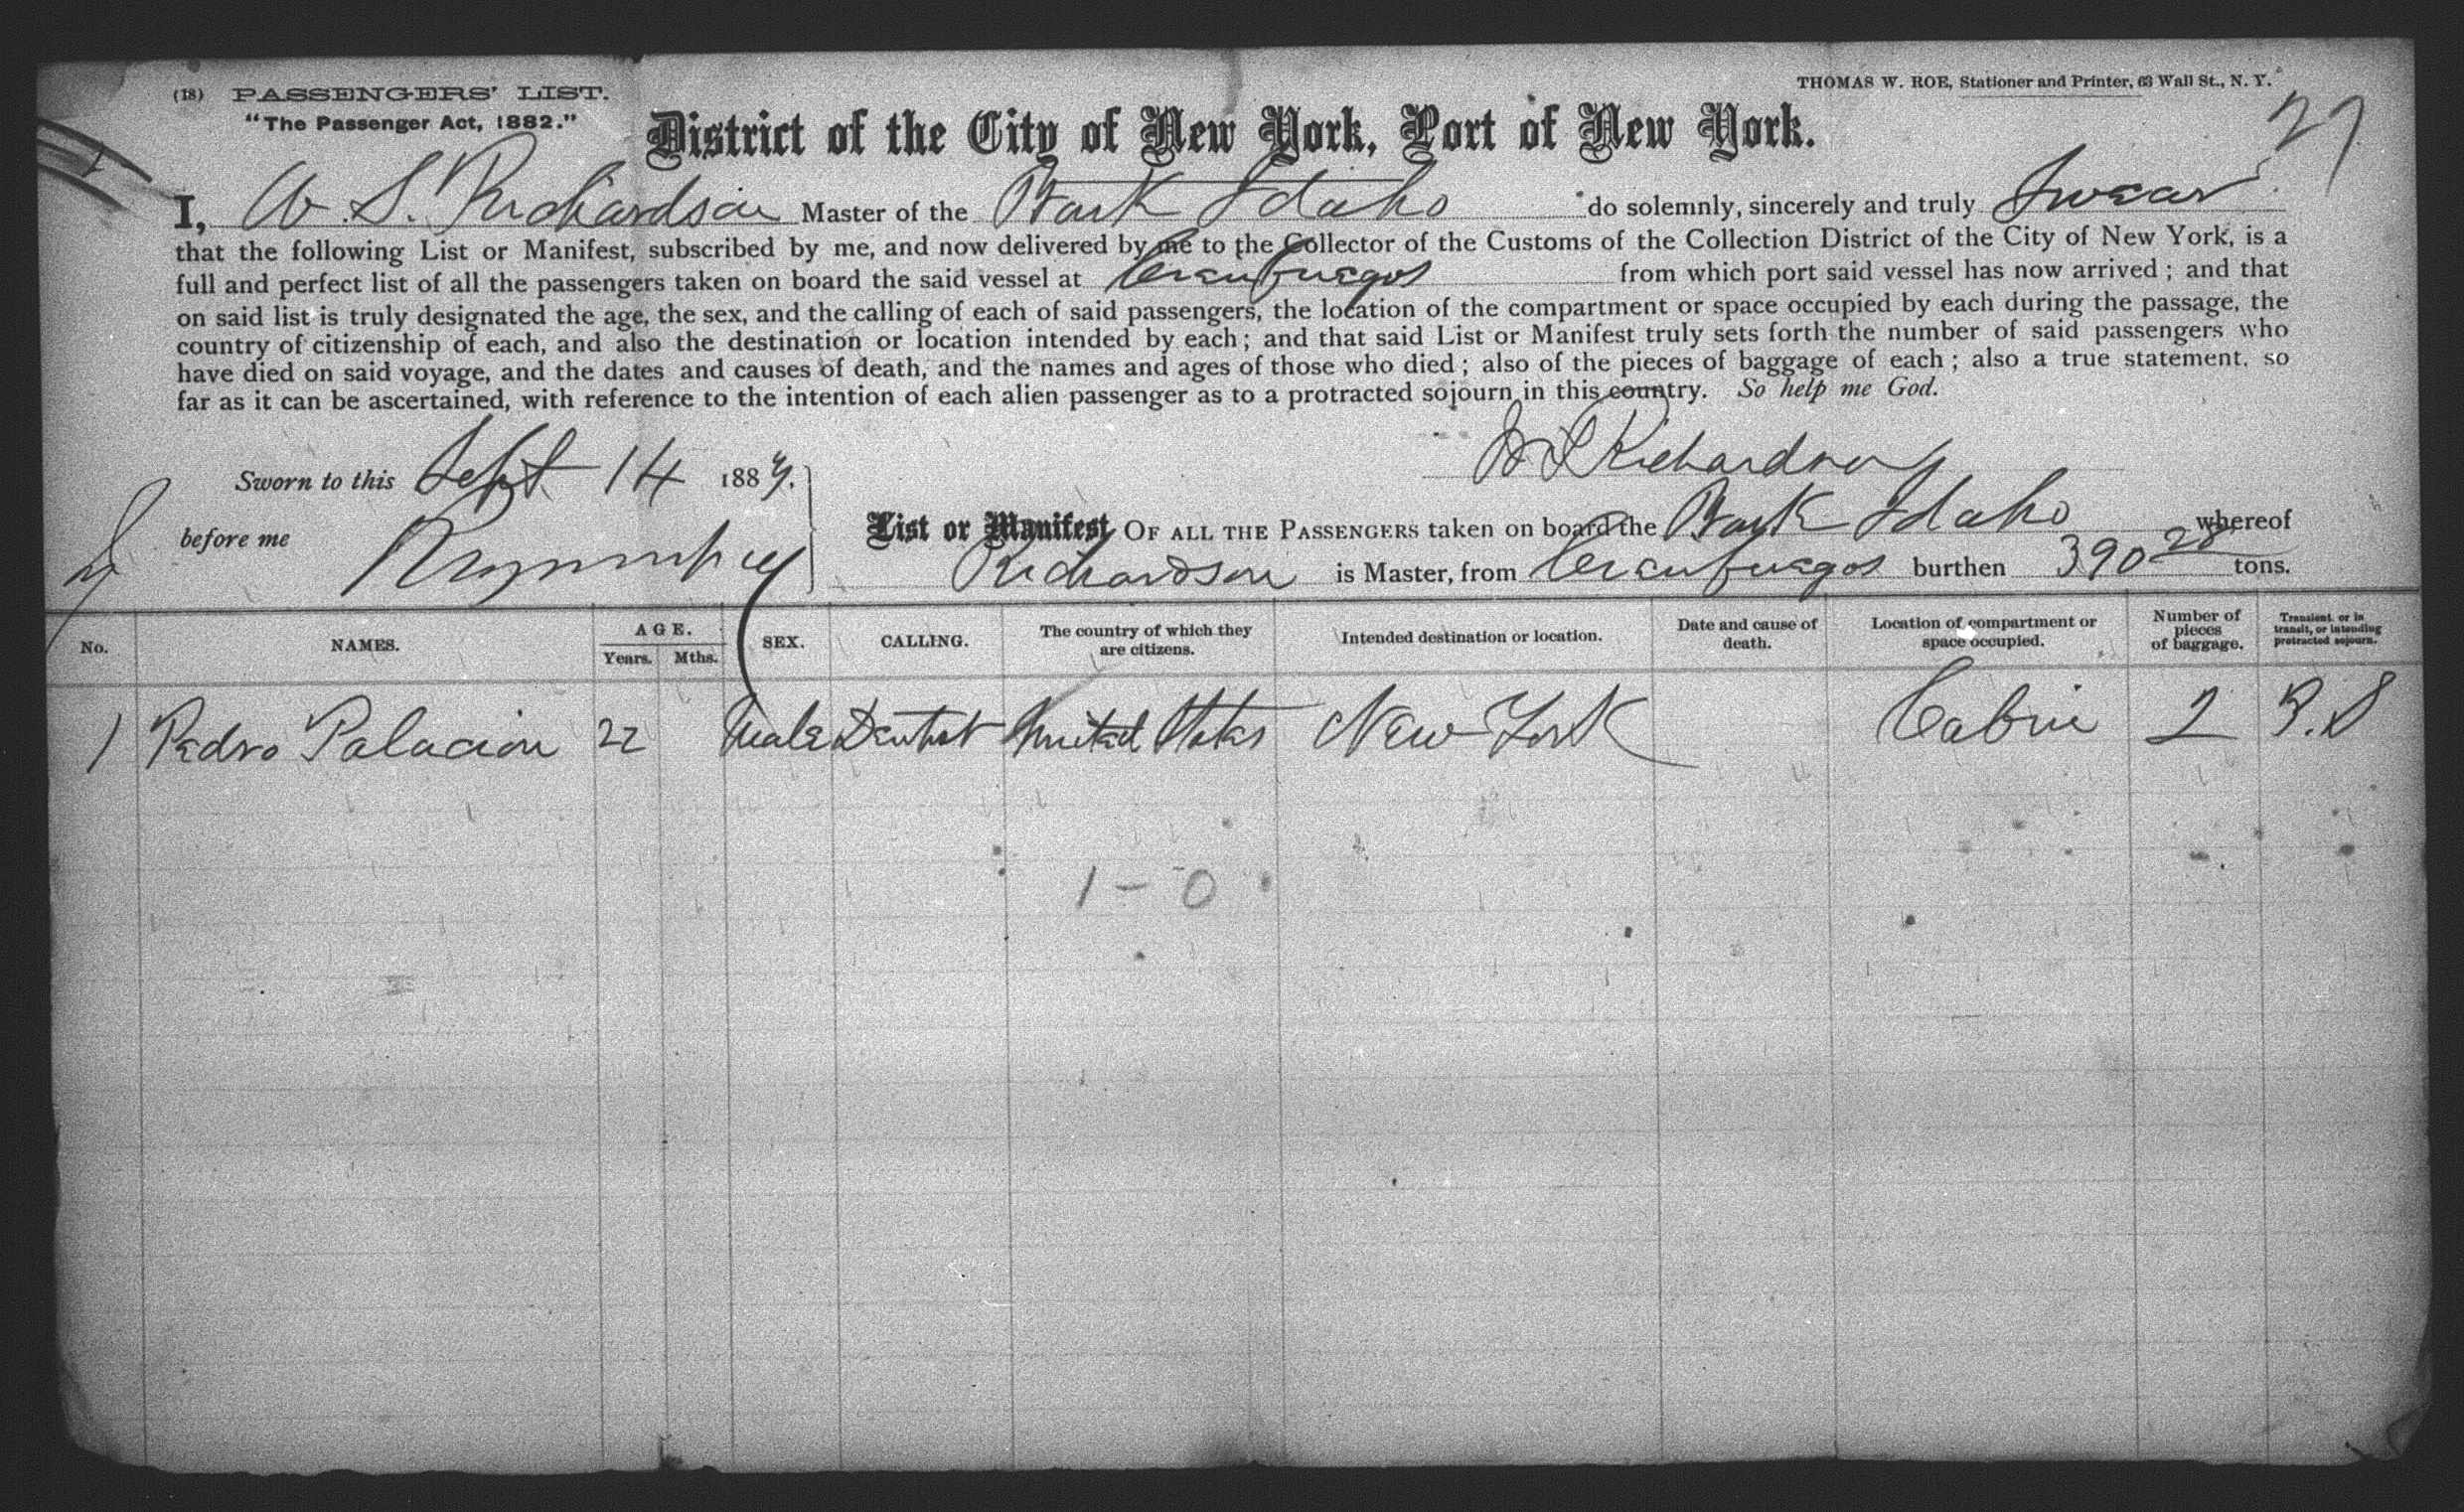 (18) PASSENGERS' LIST.
THOMAS W. ROE, Stationer and Printer, 63 Wall St., N. Y.
"The Passenger Act, 1882."
27
District of the City of New York, Port of New York.
I, W. S. Richardson Master of the Bark Idaho do solemnly, sincerely and truly Swear
that the following List or Manifest, subscribed by me, and now delivered by me to the Collector of the Customs of the Collection District of the City of New York, is a
full and perfect list of all the passengers taken on board the said vessel at Cienfuegos from which port said vessel has now arrived; and that
on said list is truly designated the age, the sex, and the calling of each of said passengers, the location of the compartment or space occupied by each during the passage, the
country of citizenship of each, and also the destination or location intended by each; and that said List or Manifest truly sets forth the number of said passengers who
have died on said voyage, and the dates and causes of death, and the names and ages of those who died; also of the pieces of baggage of each; also a true statement, so
far as it can be ascertained, with reference to the intention of each alien passenger as to a protracted sojourn in this country. So help me God.
W S Richardson
Sworn to this Sept 14 188
before me
List or Manifest OF ALL THE PASSENGERS taken on board the Bark Idaho whereof
Richardson is Master, from Cienfuegos burthen 390 28 tons.
No. NAMES. AGE. Years. Mths. SEX. CALLING. The country of which they are citizens. Intended destination or location. Date and cause of death. Location of compartment or space occupied. Number of pieces of baggage. Transient, or in transit, or intending protracted sojourn.
1 Pedro Palacion 22 Male Dentist United States New York Cabin 2 P.S
1 - 0